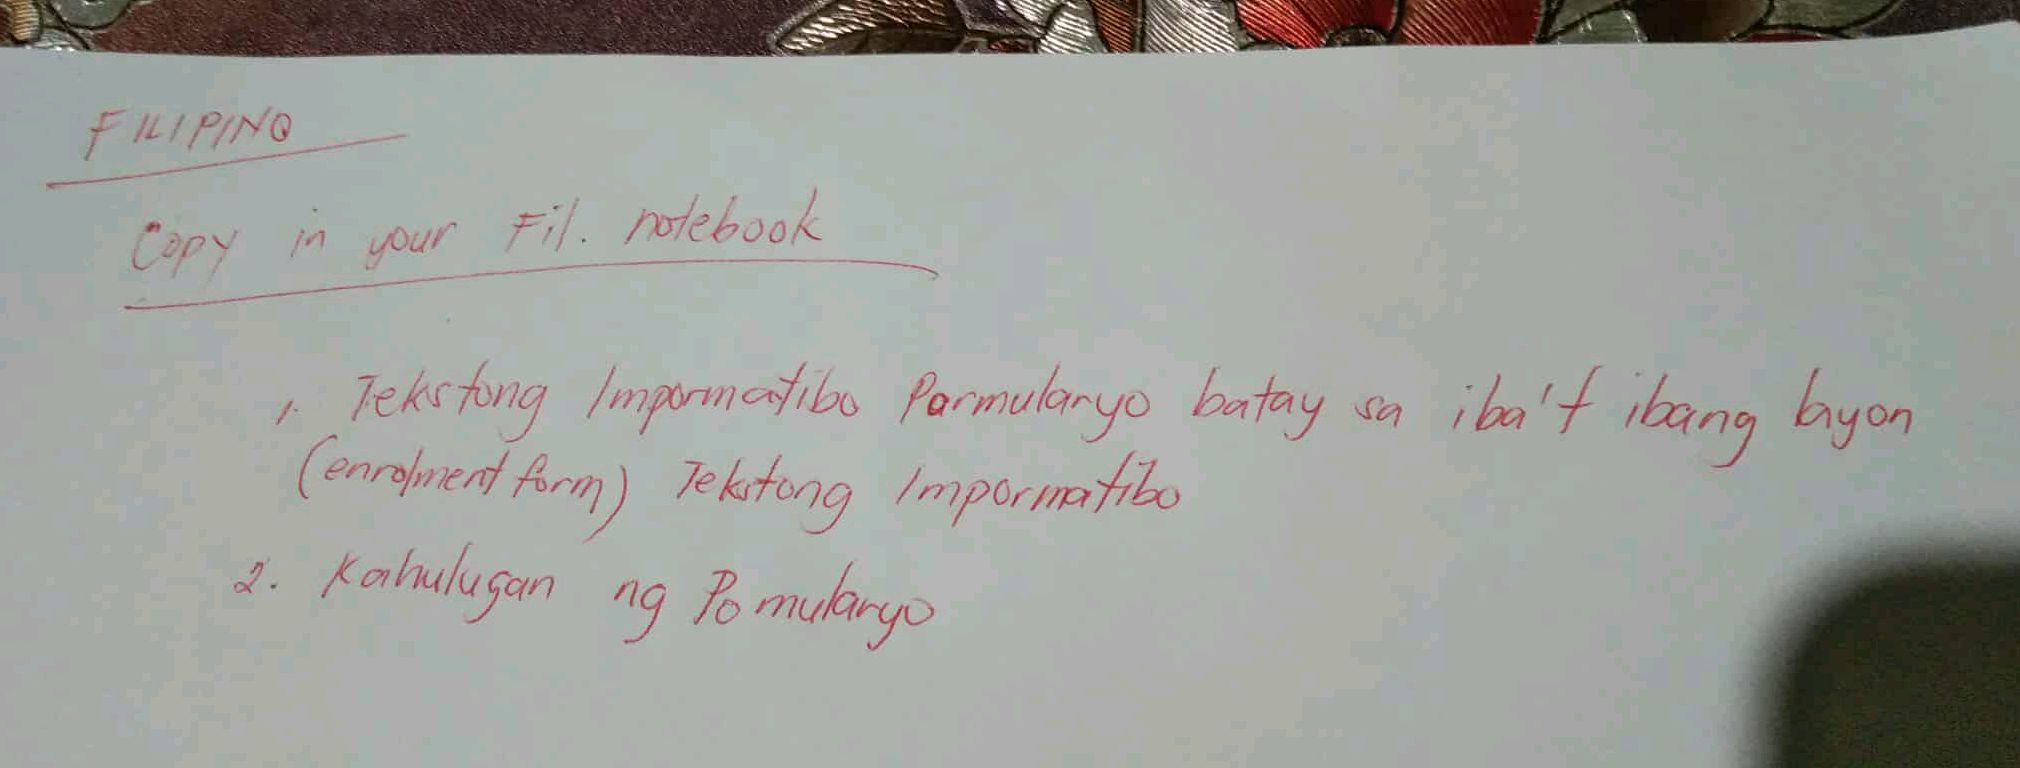 FILIPINO
Copy in your Fil. notebook
1. Tekstong Impormatibo Parmularyo batay sa iba't ibang layon
(enrolment form) Tekstong Impormatibo
2. Kahulugan ng Pomularyo